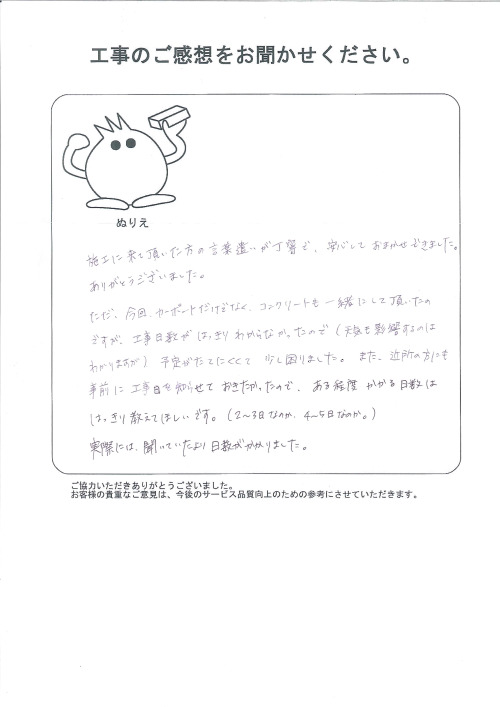 工事のご感想をお聞かせください。
ぬりえ
施工に来て頂いた方の言葉遣いが丁寧で、安心しておまかせできました。
ありがとうございました。
ただ、今回、カーポートだけでなく、コンクリートも一緒にして頂いたの
ですが、工事日数がはっきりわからなかったので(天気も影響するのは
わかりますが)予定がたてにくくて少し困りました。また、近所の方にも
事前に工事日を知らせておきたかったので、ある程度かかる日数は
はっきり教えてほしいです。(2~3日なのか、4~5日なのか。)
実際には、聞いていたより日数がかかりました。
ご協力いただきありがとうございました。
お客様の貴重なご意見は、今後のサービス品質向上のための参考にさせていただきます。